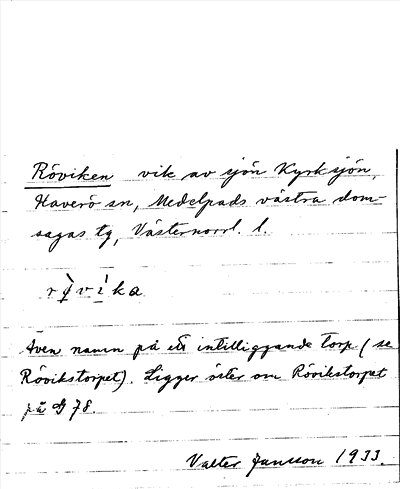 Röviken vik av sjön Kyrksjön,
Haverö sn, Medelpads västra dom-
sagas tg, Västernorrl. l.
Även namn på ett intilliggande torp (se
Rövikstorpet). Ligger öster om Rövikstorpet
på G 78.
Valter Jansson 1933.